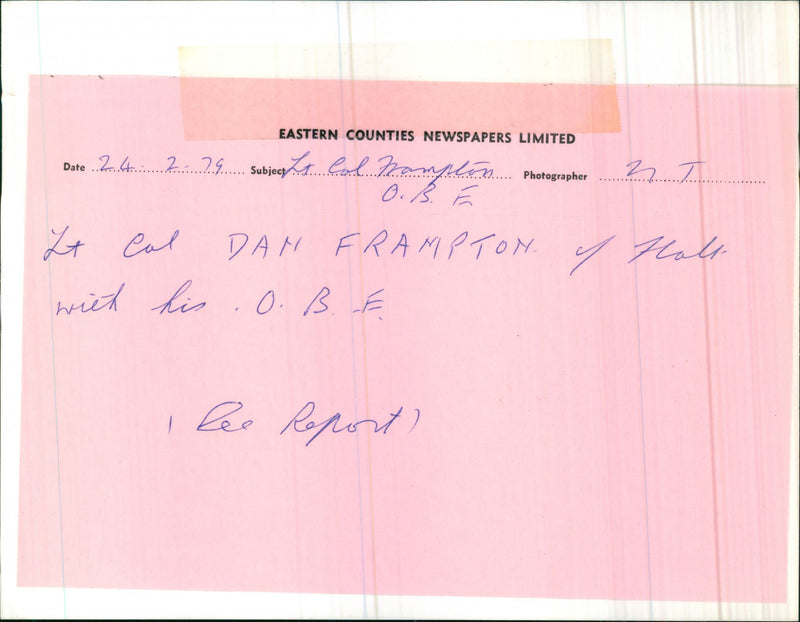 EASTERN COUNTIES NEWSPAPERS LIMITED
Date 24.2.79 Subject Lt Col Frampton Photographer
O.B.E
Lt Col DAN FRAMPTON of Holt
with his O.B.E.
(See Report)